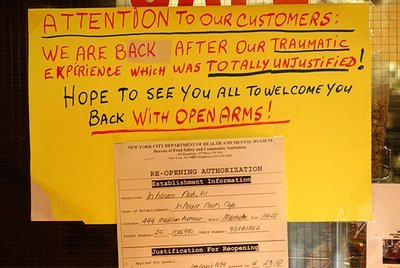 ATTENTION TO OUR CUSTOMERS:
WE ARE BACK AFTER OUR TRAUMATIC
EXPERIENCE WHICH WAS TOTALLY UNJUSTIFIED!
HOPE TO SEE YOU ALL TO WELCOME YOU
BACK WITH OPEN ARMS!
NEW YORK CITY DEPARTMENT OF HEALTH AND MENTAL HYGIENE
Bureau of Food Safety and Community Sanitation
RE-OPENING AUTHORIZATION
Establishment Information
Permittee:
Name of Establishment:
Address: Madison Avenue
Permit Number: 25
Justification For Reopening
Applied for permit